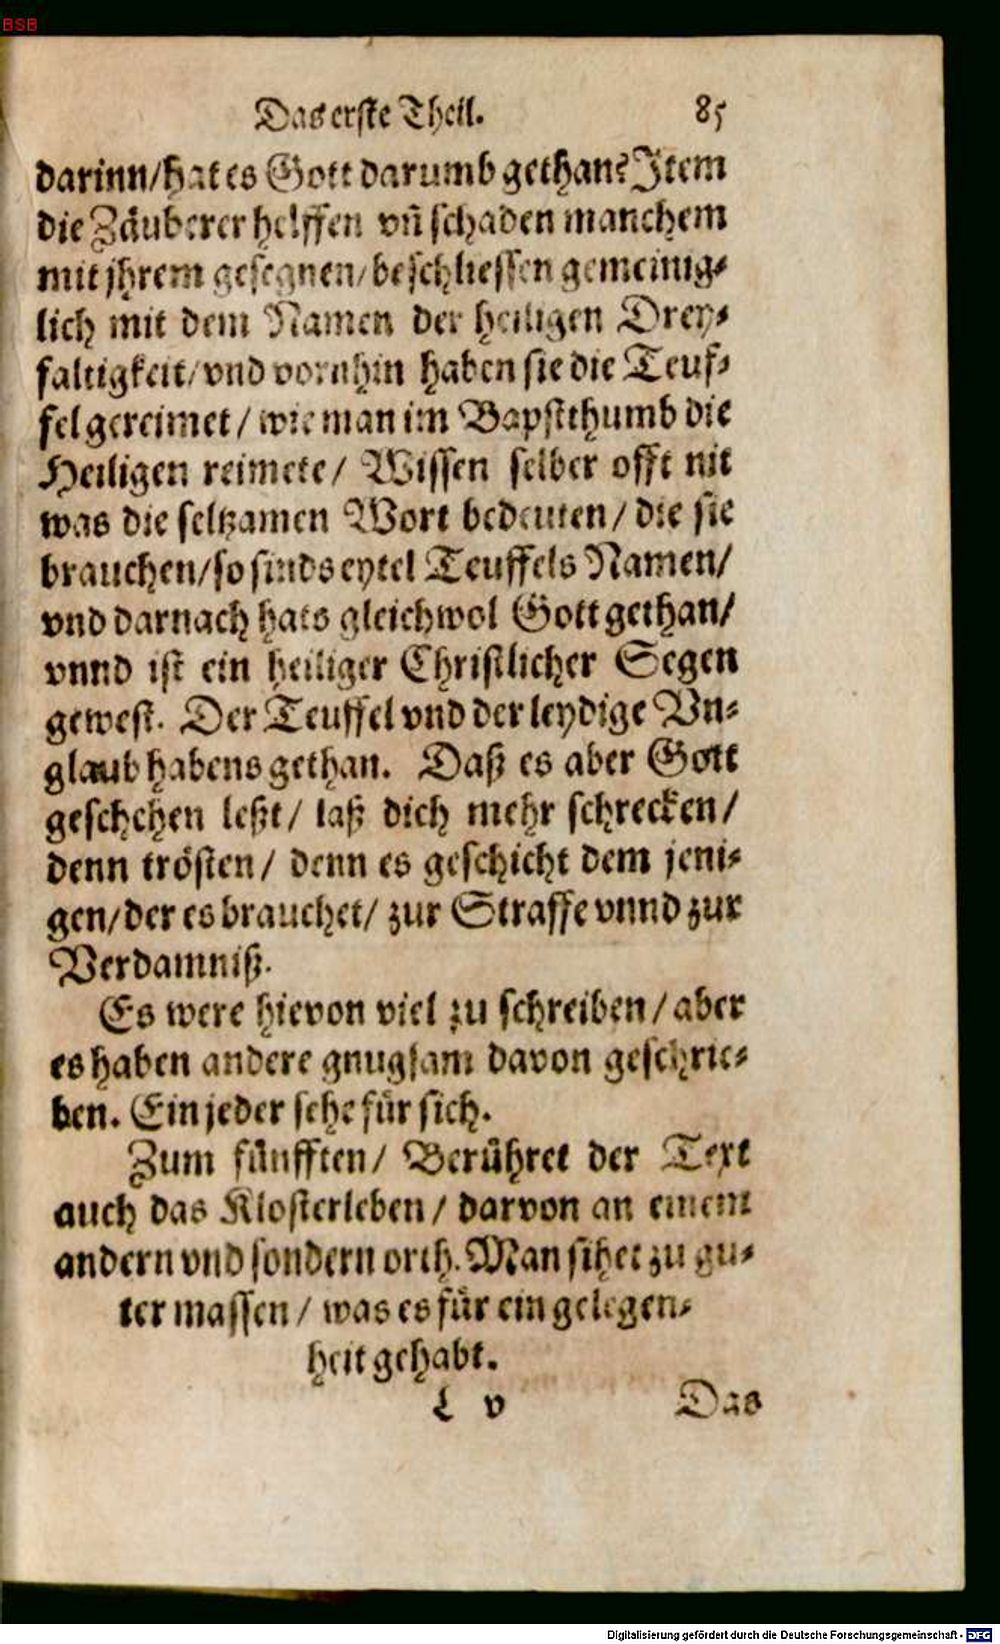 BSB
Das erste Theil. 85
darinn/hat es Gott darumb gethan? Item
die Zäuberer helffen vñ schaden manchem
mit jhrem gesegnen/beschliessen gemeinig-
lich mit dem Namen der heiligen Drey-
faltigkeit/vnd vornhin haben sie die Teuf-
fel gereimet/wie man im Bapstthumb die
Heiligen reimete/ Wissen selber offt nit
was die seltzamen Wort bedeuten/die sie
brauchen/so sinds eytel Teuffels Namen/
vnd darnach hats gleichwol Gott gethan/
vnnd ist ein heiliger Christlicher Segen
gewest. Der Teuffel vnd der leydige Vn-
glaub habens gethan. Daß es aber Gott
geschehen leßt/ laß dich mehr schrecken/
denn trösten/ denn es geschicht dem jeni-
gen/der es brauchet/ zur Straffe vnnd zur
Verdamniß.
Es were hievon viel zu schreiben/aber
es haben andere gnugsam davon geschrie-
ben. Ein jeder sehe für sich.
Zum fünfften/ Berühret der Text
auch das Klosterleben/ darvon an einem
andern vnd sondern orth. Man sihet zu gu-
ter massen/ was es für ein gelegen-
heit gehabt.
L v Das
Digitalisierung gefördert durch die Deutsche Forschungsgemeinschaft - DFG